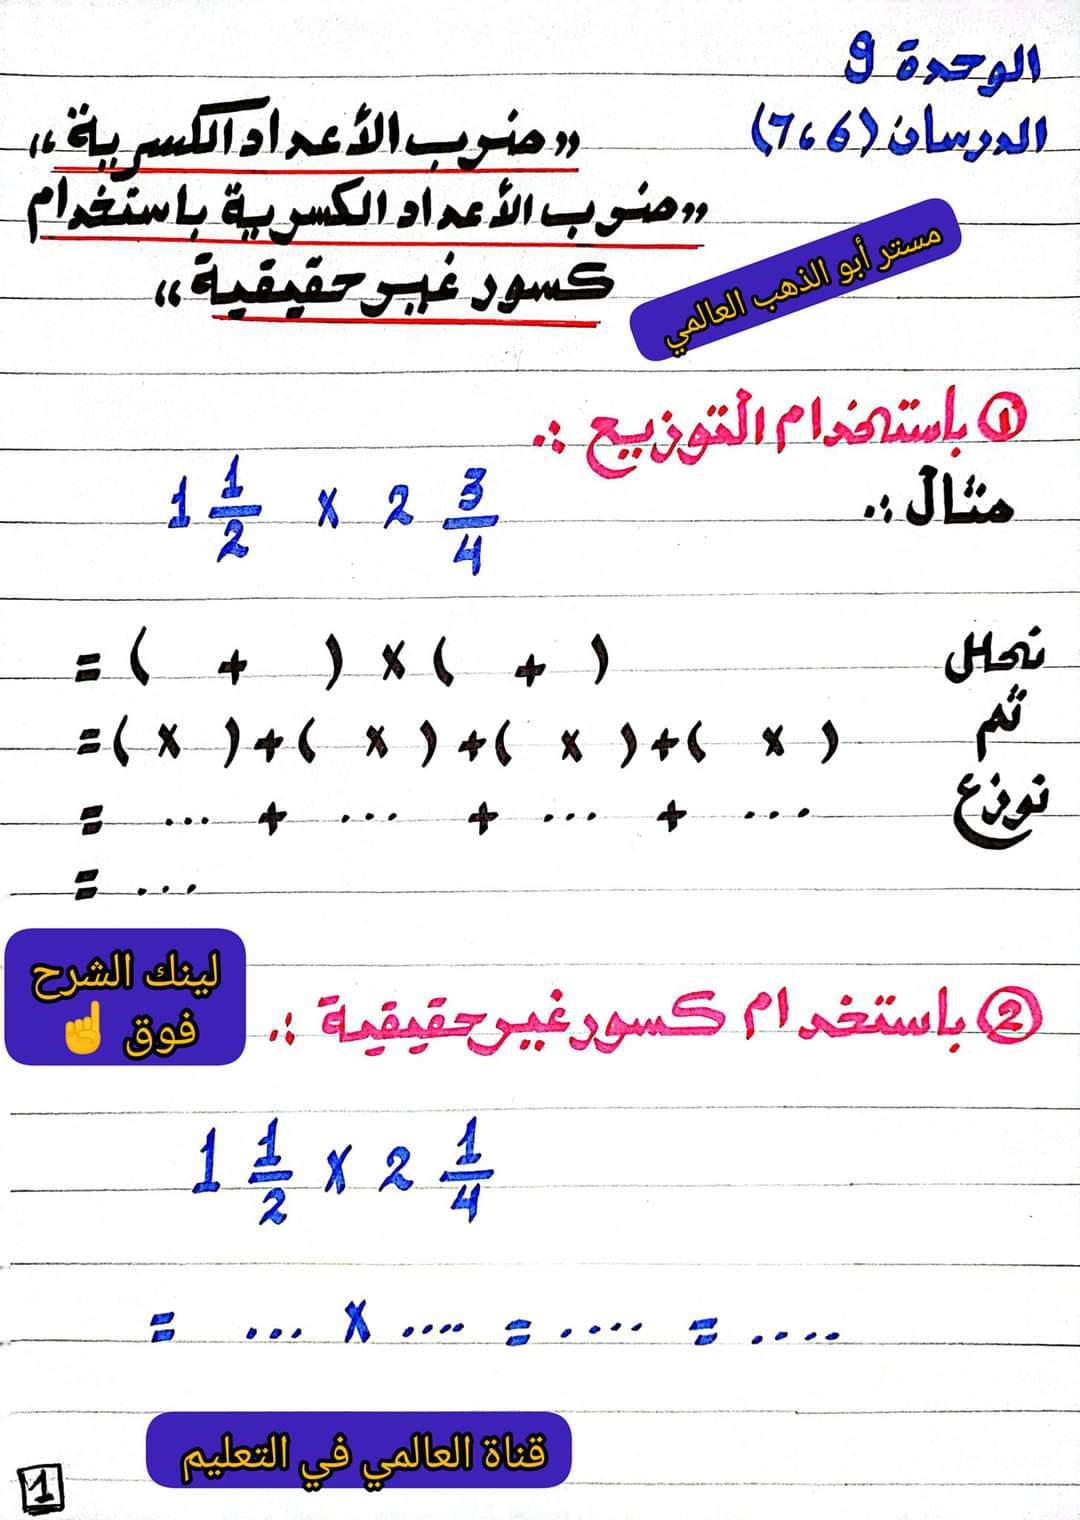 الوحدة 9
الدرسان (6، 7)
"ضرب الأعداد الكسرية"
"ضرب الأعداد الكسرية باستخدام
كسور غير حقيقية"
مستر أبو الذهب العالمي
① باستخدام التوزيع :.
مثال :.
1 1/2 x 2 3/4
نحلل
= ( + ) x ( + )
ثم
= ( x ) + ( x ) + ( x ) + ( x )
نوزع
= ... + ... + ... + ...
= ...
لينك الشرح
فوق ☝
② باستخدام كسور غير حقيقية :.
1 1/2 x 2 1/4
= ... x .... = .... = ....
قناة العالمي في التعليم
1